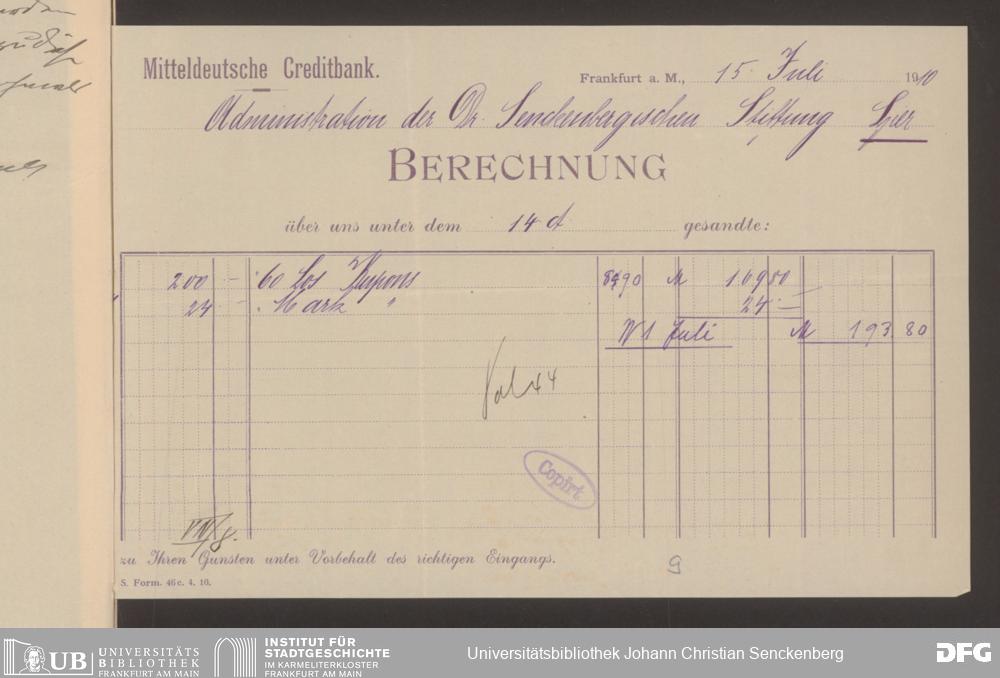 Mitteldeutsche Creditbank.
Frankfurt a. M., 15. Juli 1910
Administration der Dr. Senckenbergischen Stiftung Hier
BERECHNUNG
über uns unter dem 14 d gesandte:
200 – 60 Los Kupons 8490 M 169 80
24 – Mark " 24 –
W 1 Juli M 193.80
Copirt
zu Ihren Gunsten unter Vorbehalt des richtigen Eingangs.
S. Form. 46c. 4. 10.
9
UB UNIVERSITÄTS BIBLIOTHEK FRANKFURT AM MAIN
INSTITUT FÜR STADTGESCHICHTE IM KARMELITERKLOSTER FRANKFURT AM MAIN
Universitätsbibliothek Johann Christian Senckenberg
DFG